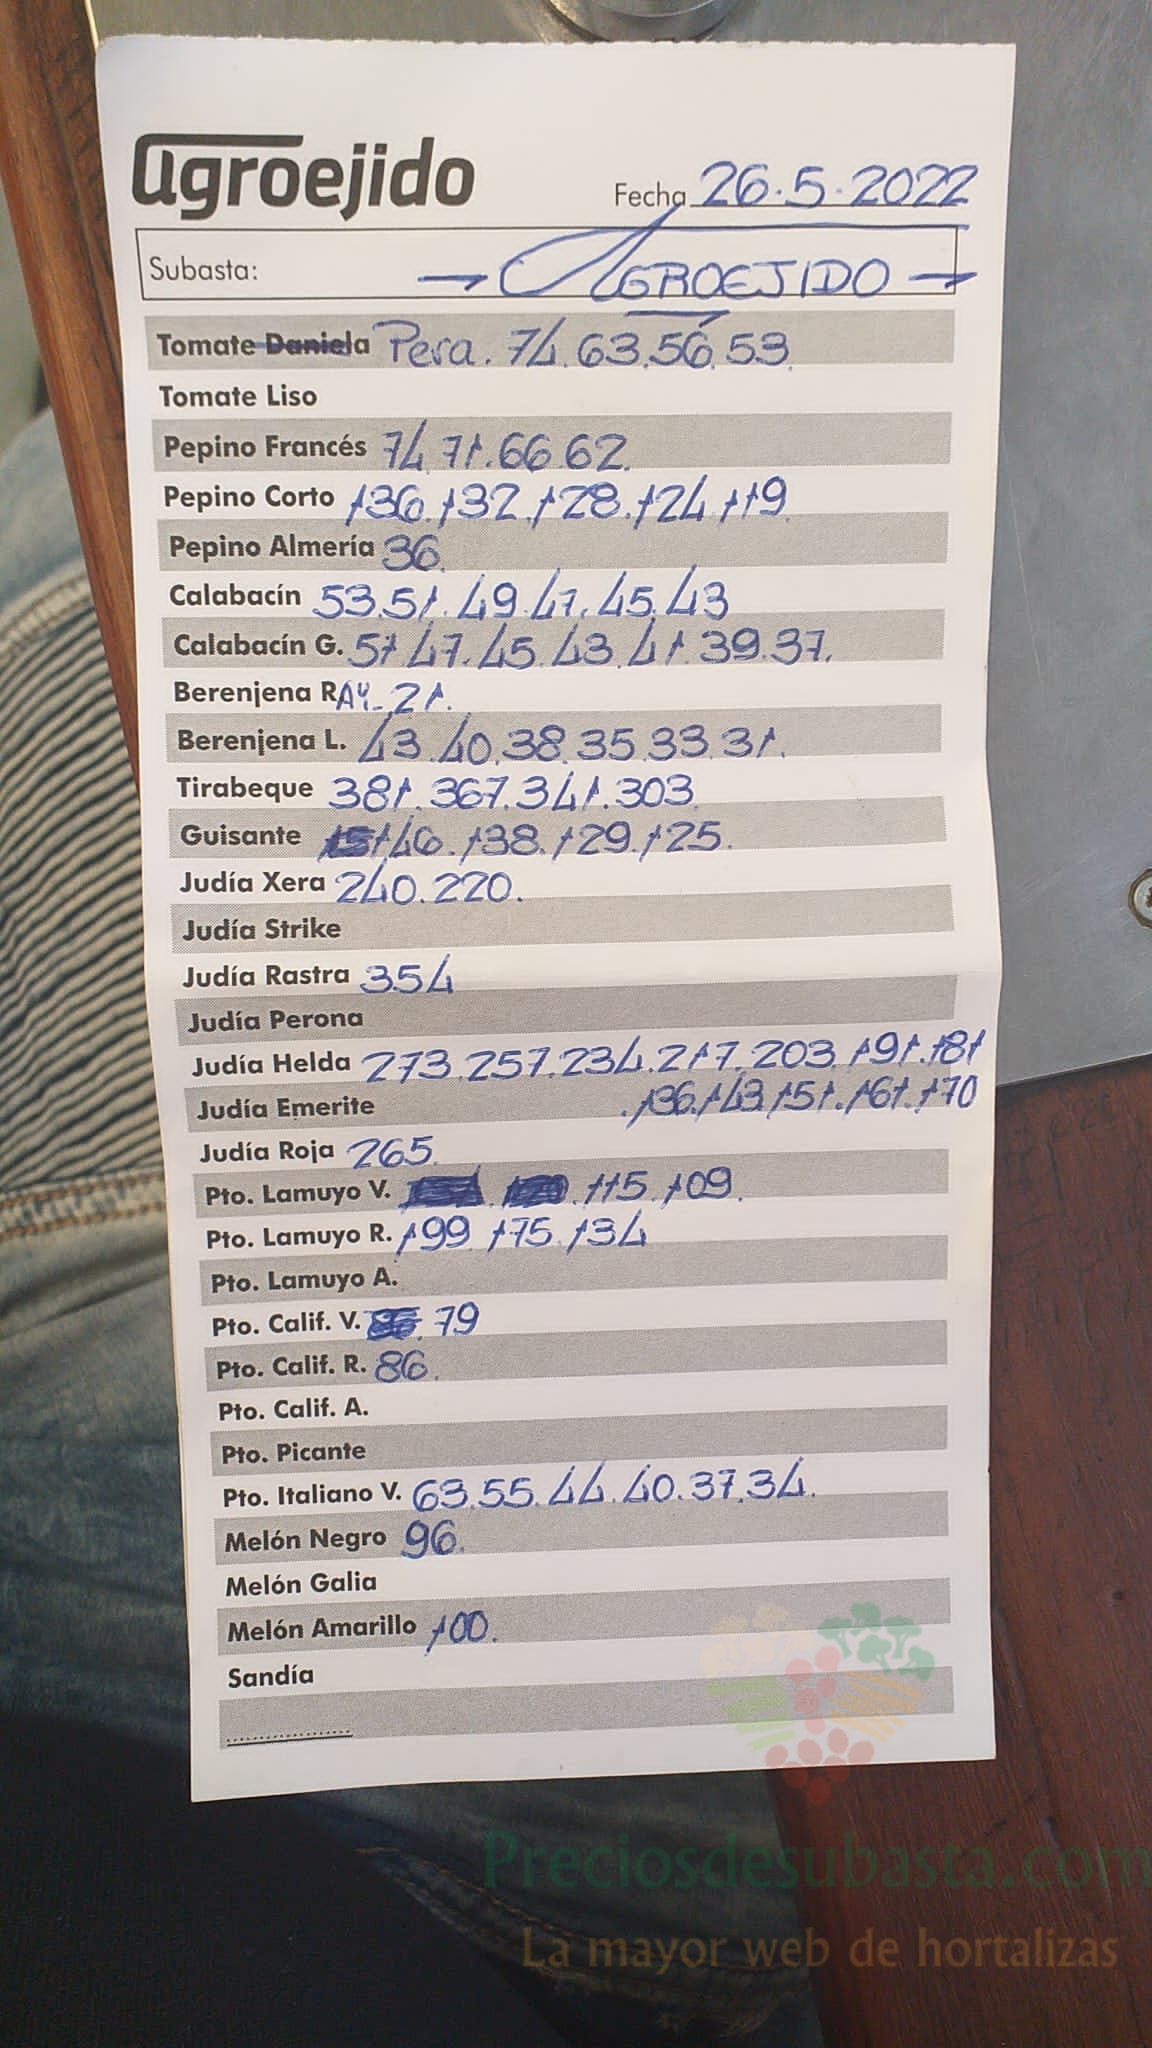 agroejido
Fecha 26.5.2022
Subasta: → AGROEJIDO →
Tomate Daniela Pera. 74.63.56.53.
Tomate Liso
Pepino Francés 74.71.66.62.
Pepino Corto 136.132.128.124.119.
Pepino Almería 36.
Calabacín 53.51.49.47.45.43
Calabacín G. 51.47.45.43.41.39.37.
Berenjena RAY. 21.
Berenjena L. 43.40.38.35.33.31.
Tirabeque 381.367.341.303.
Guisante 146.138.129.125.
Judía Xera 240.220.
Judía Strike
Judía Rastra 354
Judía Perona
Judía Helda 273.257.234.217.203.191.181
Judía Emerite .136.143.151.161.170
Judía Roja 265.
Pto. Lamuyo V. 115.109.
Pto. Lamuyo R. 199 175.134
Pto. Lamuyo A.
Pto. Calif. V. 79
Pto. Calif. R. 86.
Pto. Calif. A.
Pto. Picante
Pto. Italiano V. 63.55.44.40.37.34.
Melón Negro 96.
Melón Galia
Melón Amarillo 100.
Sandía
Preciosdesubasta.com
La mayor web de hortalizas